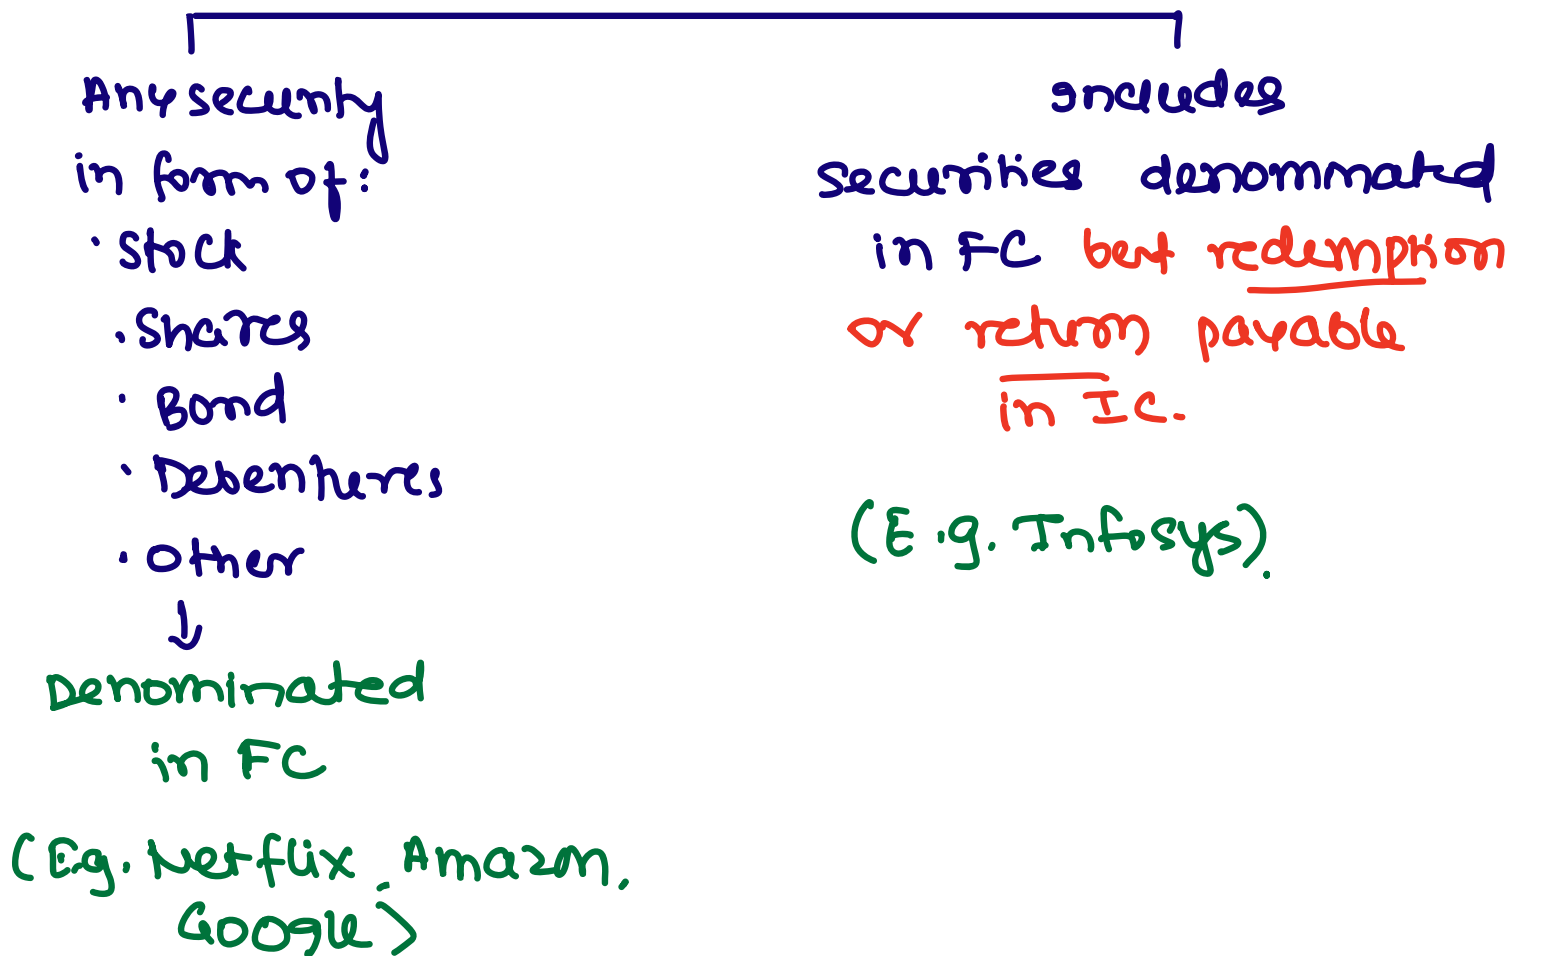 Any security
in form of:
· Stock
· Shares
· Bond
· Debentures
· Other
↓
Denominated
in FC
(Eg. Netflix, Amazon,
Google)
Includes
securities denominated
in FC but redemption
or return payable
in IC.
(E.g. Infosys).